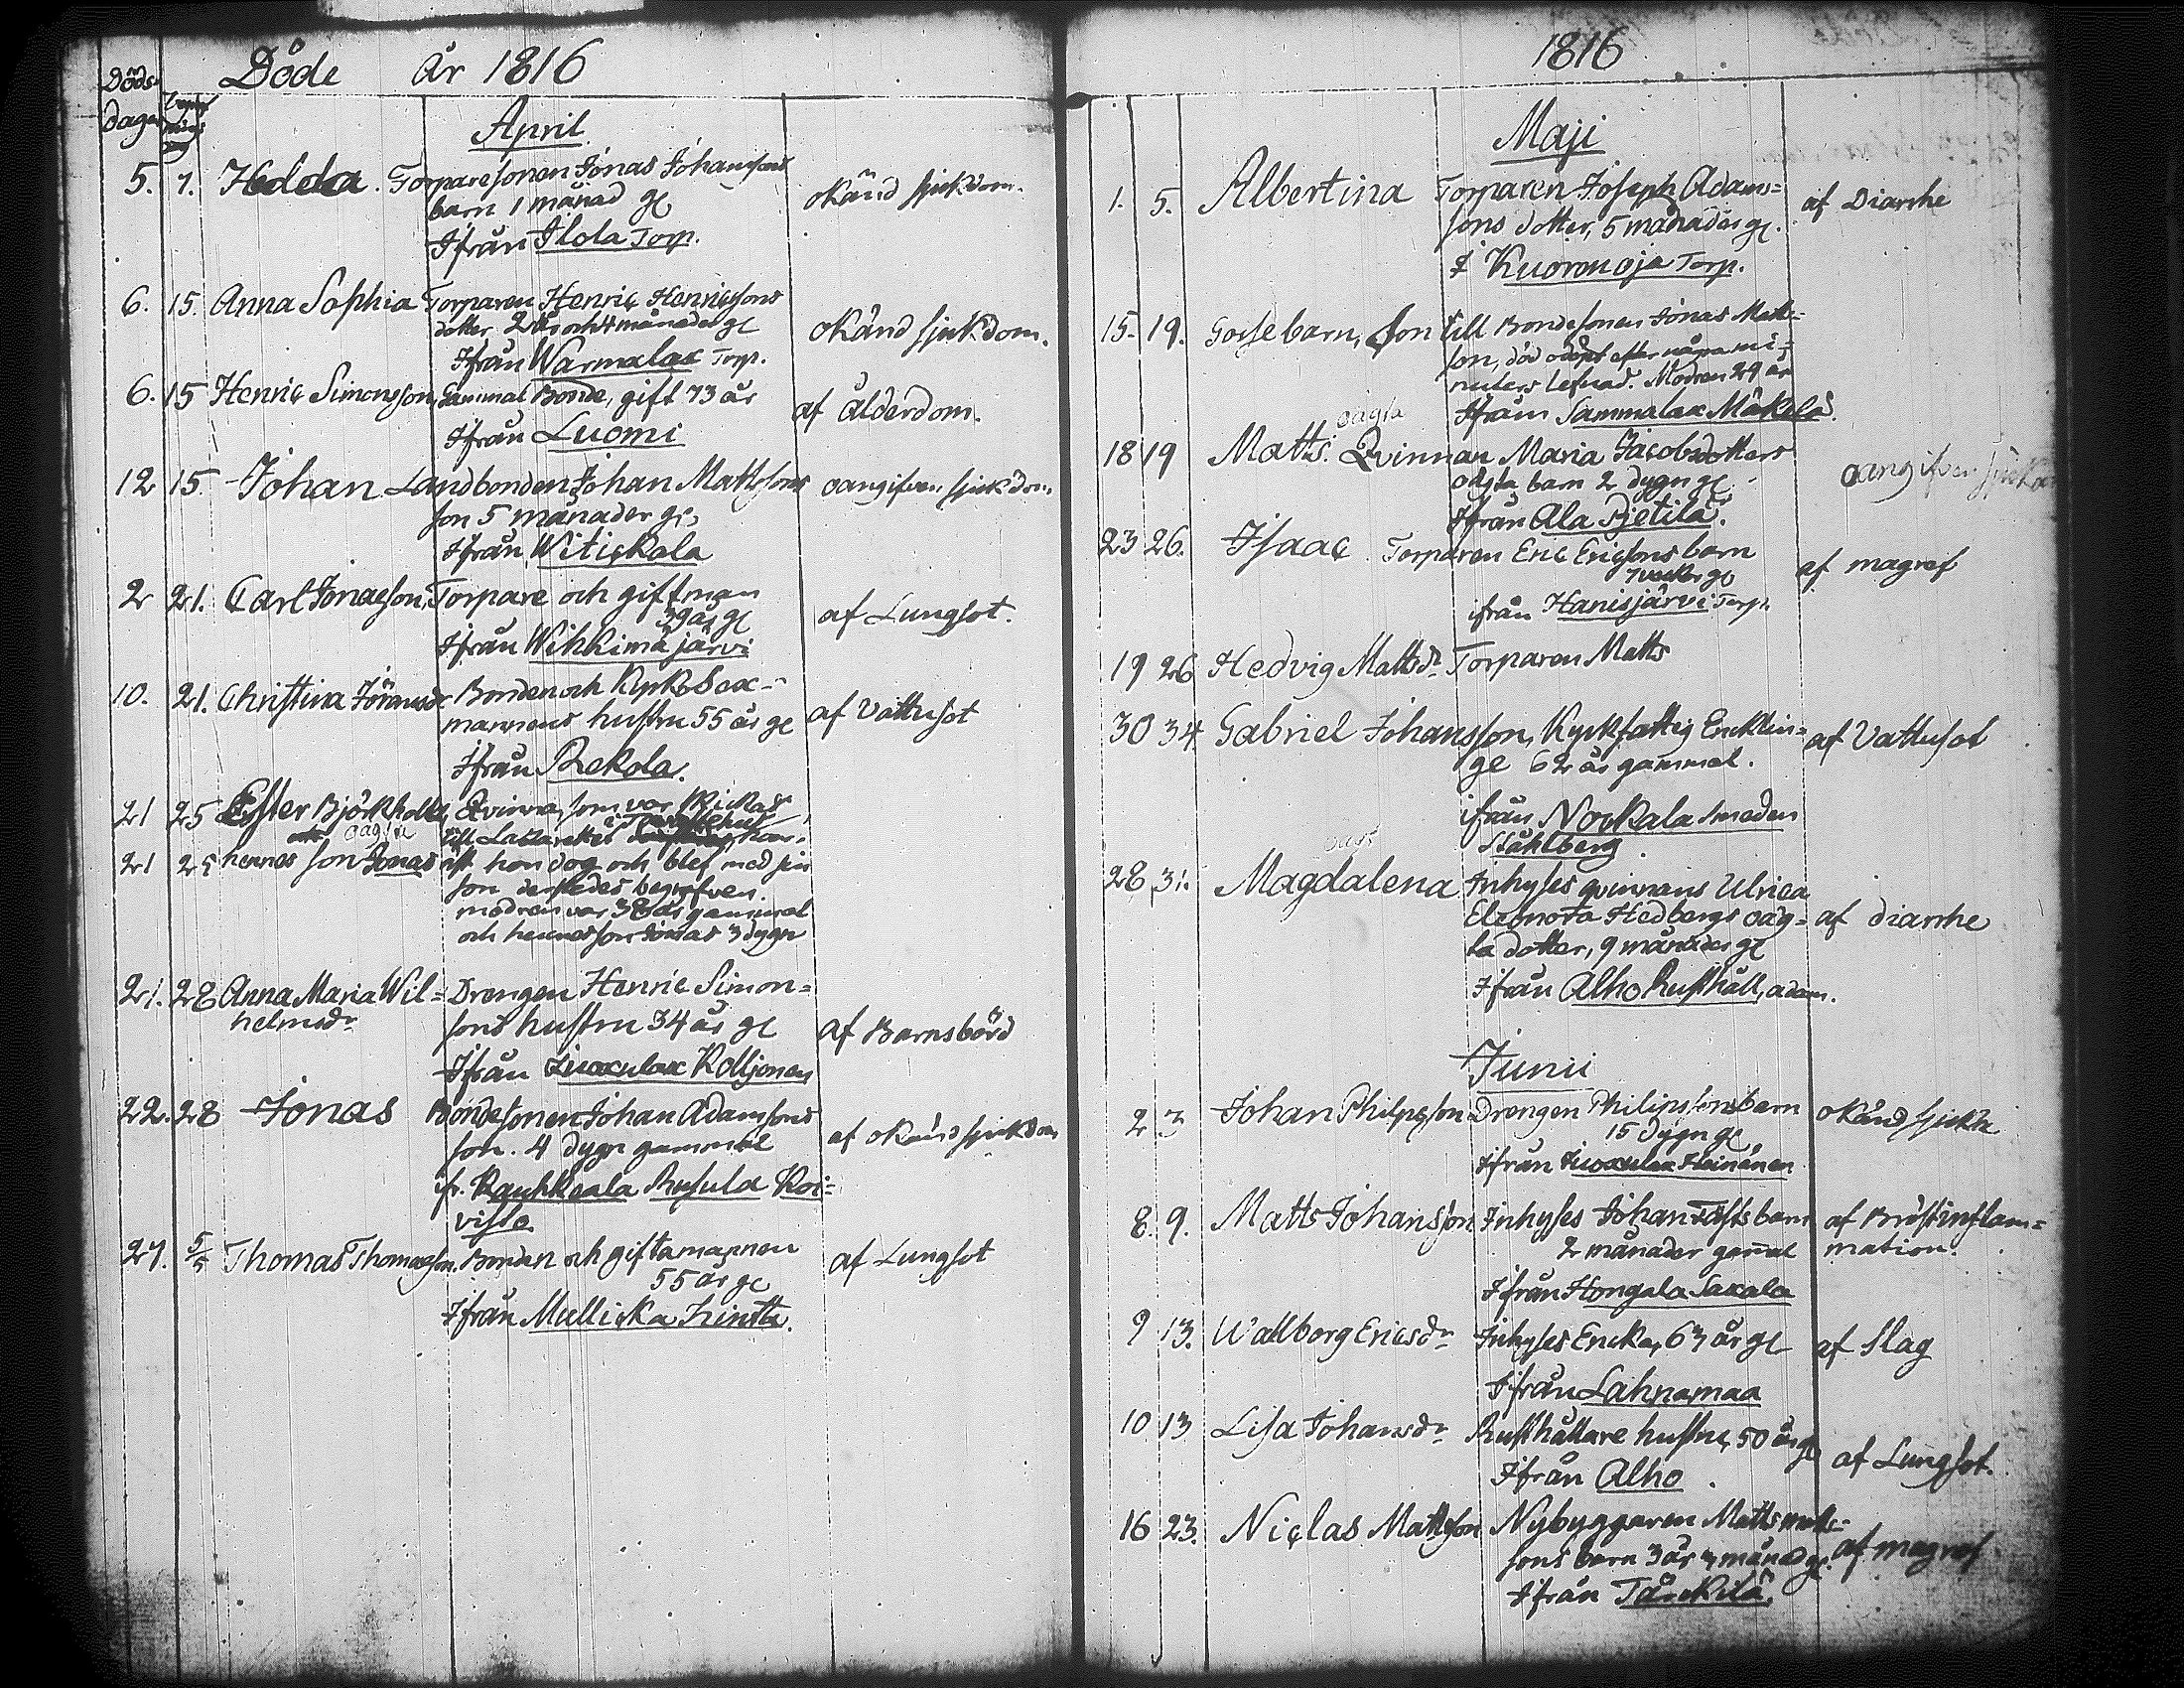 Döde År 1816
Döds-
dagar
April
5. 7. Hedda. Torparesonen Jonas Johanssons okänd sjukdom.
barn 1 månad gl
Ifrån Ilola Torp.
6. 15. Anna Sophia Torparen Henric Henricssons
dotter 2 år och 4 månader gl okänd sjukdom.
Ifrån Warmalax Torp.
6. 15 Henric Simonsson, Gammal Bonde, gift 73 år af Ålderdom.
Ifrån Luomi
12 15. Johan Landbonden Johan Mattssons oangifven sjukdom
son 5 månader gl,
Ifrån Witickala
2 21. Carl Jonasson, Torpare och giftman
39 år gl af Lungsot.
Ifrån Wihkimäjärvi
10. 21. Christina Jöransdr Bonden och Kyrko Sex-
mannens hustru 55 år gl af Vattusot
Ifrån Rekola.
21 25 Ester Björkholtz, Qvinna, som var skickas
oägta till Lazarettet i Tavastehus, hvar-
21 25 hennes son Jonas est hon dog och blef med sin
son derstedes begrafven.
modren var 38 år gammal
och hennes son Jonas 3 dygn
21. 28 Anna Maria Wil- Drengen Henric Simon-
helmsdr sons hustru 34 år gl af Barnsbörd
Ifrån Kolljonen
22. 28 Jonas Bondesonen Johan Adamssons
son. 4 dygn gammal af okänd sjukdom
ifr. Rauhkeala Rusula Koi-
visto.
27. 5/5 Thomas Thomasson. Bonden och giftamannen af Lungsot
55 år gl
Ifrån Mullicka
1816
Maji
1. 5. Albertina Torparen Joseph Adams-
sons dotter, 5 månader gl. af Diarrhe
I Kuorenoja Torp.
15. 19. Gossebarn, Son till Bondesonen Jonas Matts-
son, död odöpt efter några mi-
nuters lefnad. Modren 29 år
Ifrån Sammalax Mäkelä.
oägta
18 19 Matts. Qvinnan Maria Jacobsdotters oangifven
oägta barn 2 dygn gl.
Ifrån Ala Pjetilä.
23 26. Isaac Torparen Eric Ericssons barn
7 veckor gl af magref
ifrån Hanisjärvi Torp.
19 26 Hedvig Mattsdr Torparen Matts
30 34 Gabriel Johansson, Kyrkfattig Encklin-
ge 62 år gammal. af Vattusot
ifrån Norkala smeden
Ståhlberg
28 31. Magdalena Inhyses qvinnans Ulrica
Eleonora Hedbergs oäg- af diarrhe
ta dotter, 9 månader gl
Ifrån Alho Rusthåll, adam.
Junii
2 3 Johan Philipsson Drengen Philipssons barn okänd
15 dygn gl
Ifrån Heinonen
8. 9. Matts Johansson Inhyses Johan barn af Bröstinflam-
2 månader gamal mation.
Ifrån Hongala Saxala
9 13. Wallborg Ericsdr Inhyses Encka, 63 år gl af Slag
Ifrån Lahnamaa
10 13 Lisa Johansdr Rusthållare hustru, 50 år gl
Ifrån Alho. af Lungsot.
16 23. Niclas Mattsson Nybyggaren Matts Matts-
sons barn 3 år månad gl. af magref
Ifrån